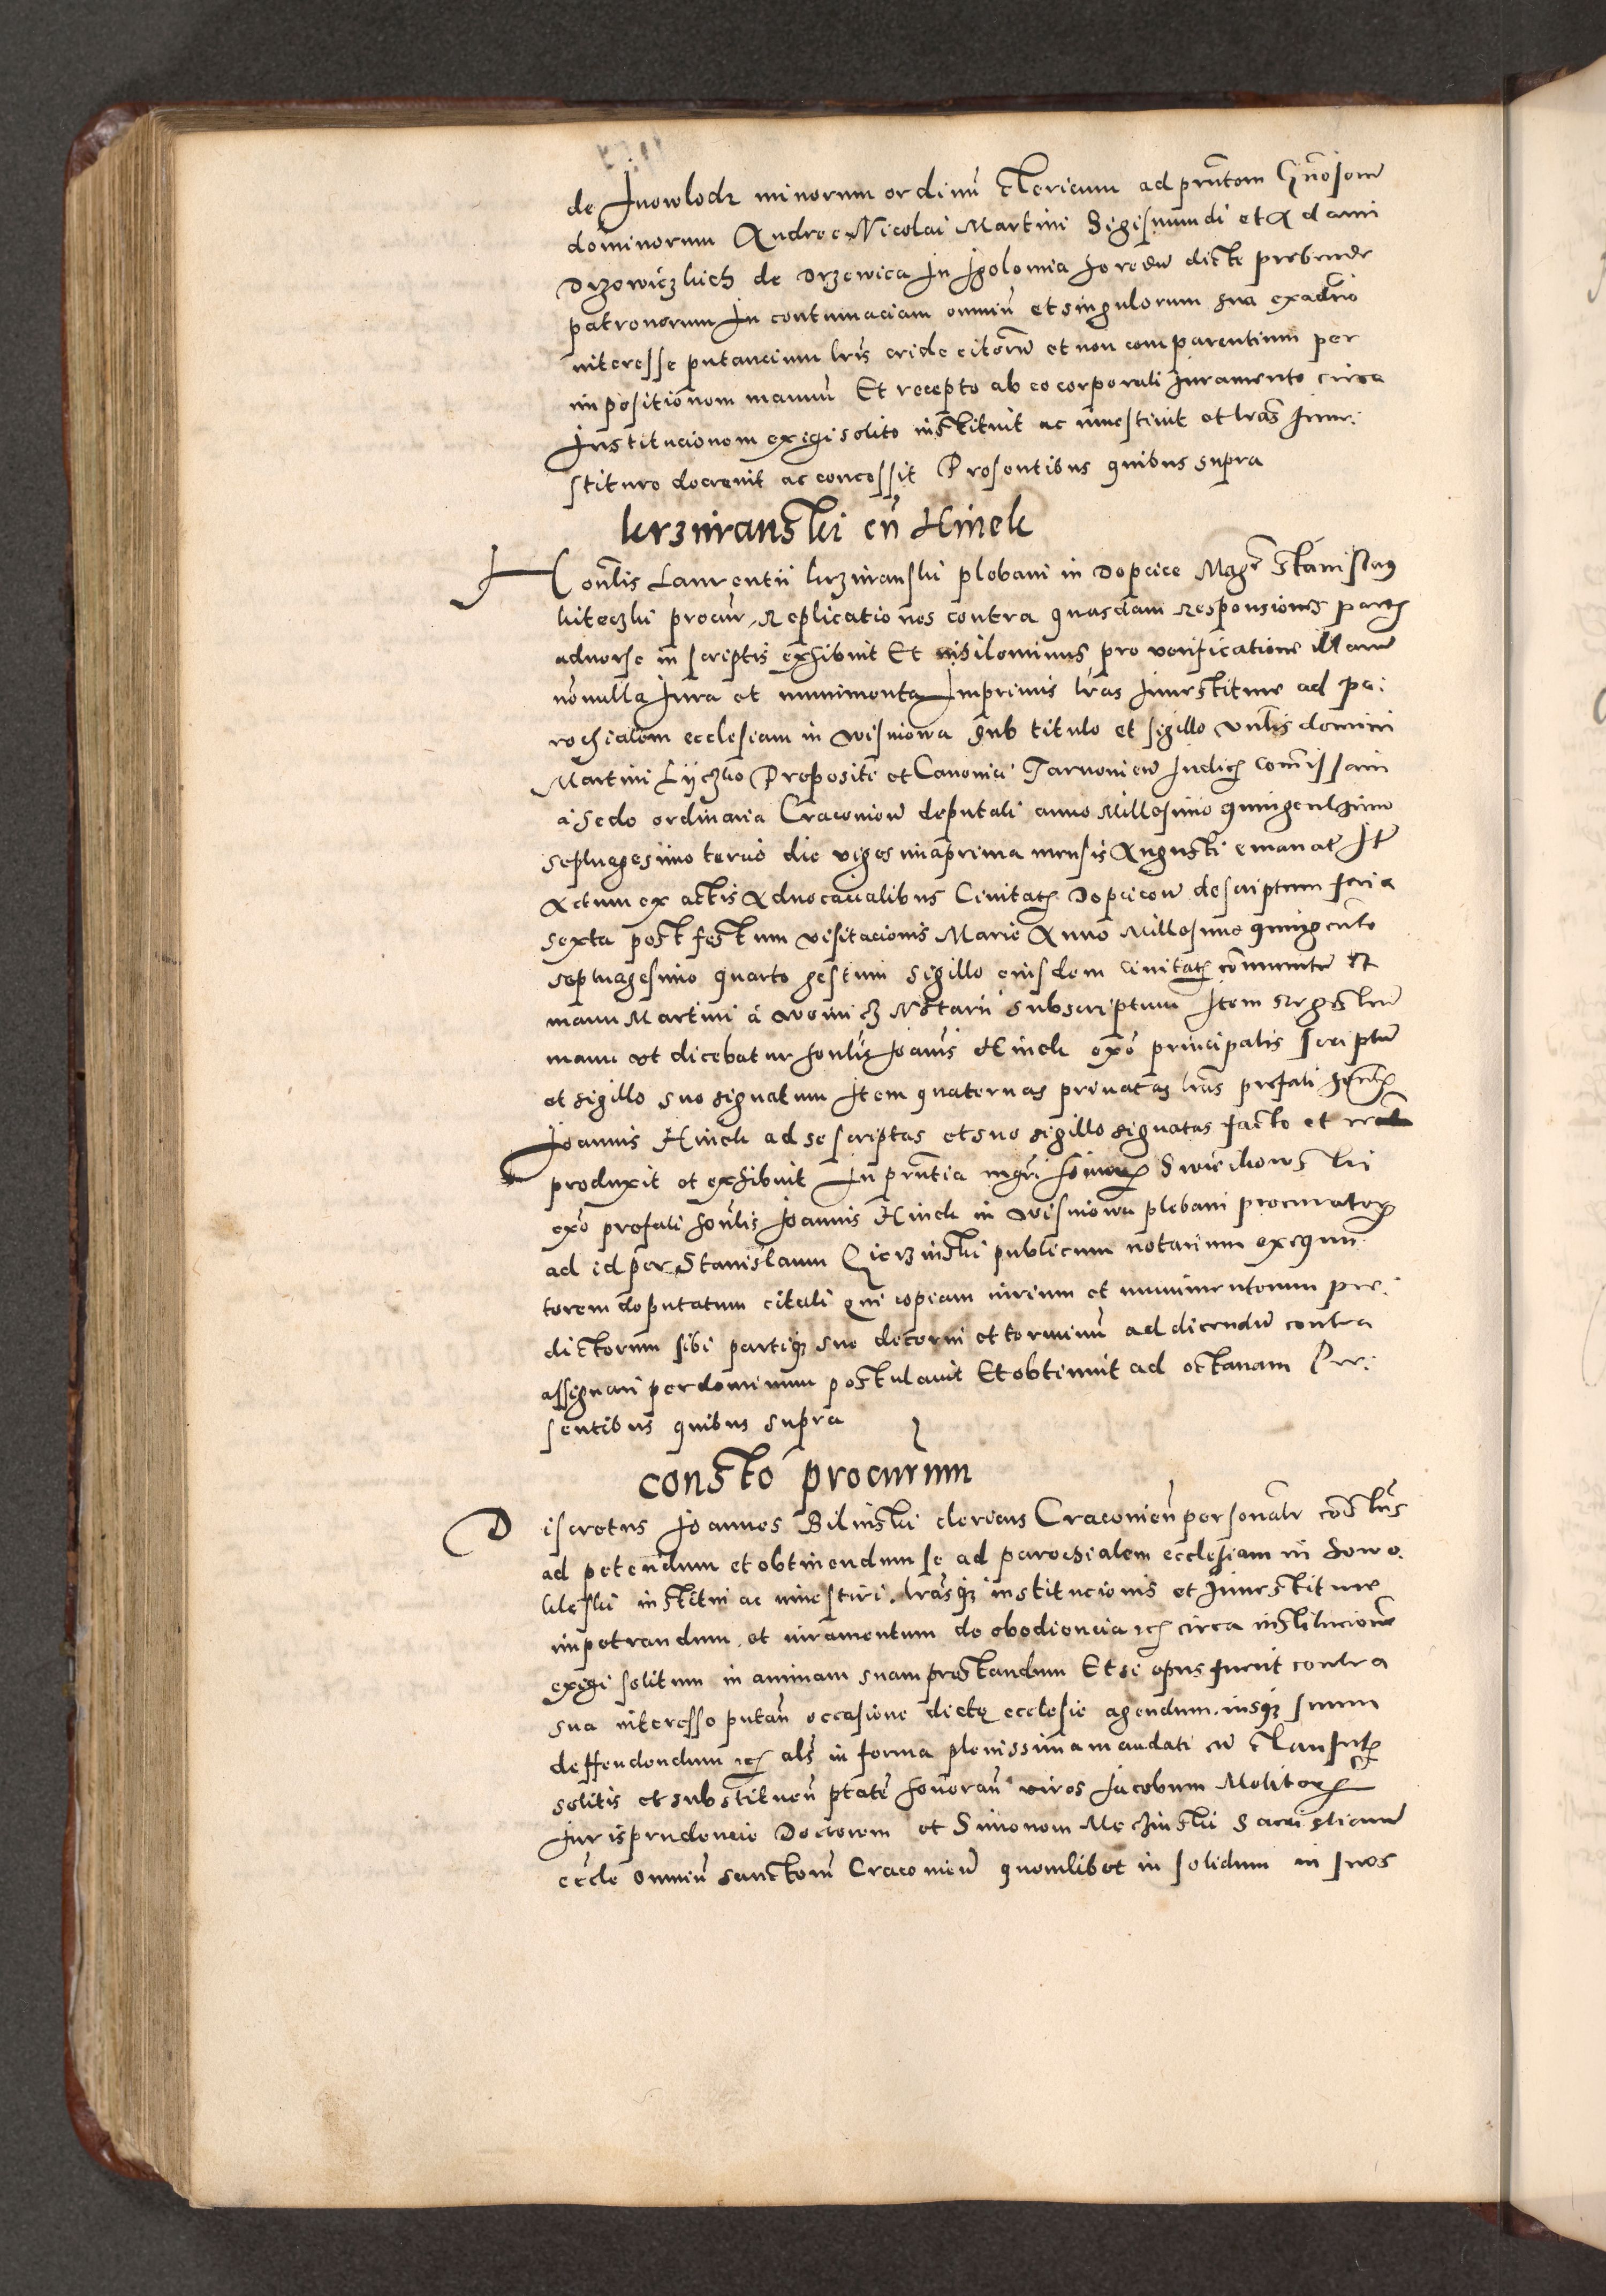 de Inowlodz minorum ordinũ clericum ad prñtom Gñosorũ
dominorum Andree Nicolai Martini Sigismundi et Adami
Drzewiczkich de Drzewica In Igolomia heredũ dicte prebende
patronorum In contumaciam omniũ et singulorum sua
interesse putancium lrĩs eride citorũ et non comparentium per
impositionem manuũ Et recepto ab eo corporali Iuramento circa
Institucionem exigi solito instituit ac inuestiuit et lrãs Inue:
stiture decreuit ac concessit Presentibus quibus supra
krzniranski cũ Hinek
Honlis Laurentii krzniranski plebani in Dopcice Magr Stanislaus
kiteczki procur Replicationes contra quasdam responsiones partis
aduerse in scriptis exhibuit Et nihilominus pro verificatione illarũ
nõnulla Iura et munimenta Imprimis lrãs Inuestiture ad pa:
rochialem ecclesiam in wisniowa sub titulo et sigillo vnlis domini
Martini Lyczko Prepositi et Canonici Tarnonień Iudicis comissarii
a sede ordinaria Craconień deputati anno Millesimo quingentesimo
septuagesimo tercio die vigesimaprima mensis Augusti emanat Itẽ
Actum ex actis Aduocacialibus Ciuitatis Dopcicen descriptum feria
sexta post festum visitacionis Marie Anno Millesimo quingento
septuagesimo quarto gestum sigillo eiusdem ciuitatis comunitũ et
manu Martini a Notarii subscriptum Item regestrũ
manu vt dicebatur honlis Ioanis Hinek exõ principalis scriptũ
et sigillo suo signatum Item quaternas priuatas lrãs prefati honlis
Ioannis Hinek ad se scriptas et suo sigillo signatas facto et real
produxit et exhibuit In prñtia mgri Swierchowski
exõ prefati honlis Ioannis Hinek in wisniowa plebani procuratoris
ad id per Stanislaum publicum notarium exequu:
torem deputatum citati Qui copiam iurium et munimentorum pre:
dictorum sibi partiq; sue decerni et terminũ ad dicendũ contra
assignari per dominum postulauit Et obtinuit ad octauam Pre:
sentibus quibus supra
constõ procurũm
Discretus Ioannes Bilinski clericus Craconień personalr constũs
ad petendum et obtinendum se ad parochialem ecclesiam in
institui ac inuestiri. lrãsq; institucionis et Inuestiture
impetrandum et iuramentum de obediencia etc circa institucionẽ
exigi solitum in animam suam prestandum Et si opus fuerit contra
sua interesse putań occasione dicte ecclesie agendum iusq; suum
deffendendum etc als in forma plenissima mandati cũ clausulis
solitis et substituen ptate honoran viros Iacobum Molitoris
Iurisprudencie Doctorem et Simonem Mechinski
eccle Omniũ Sanctorũ Craconień quemlibet in solidum in suos